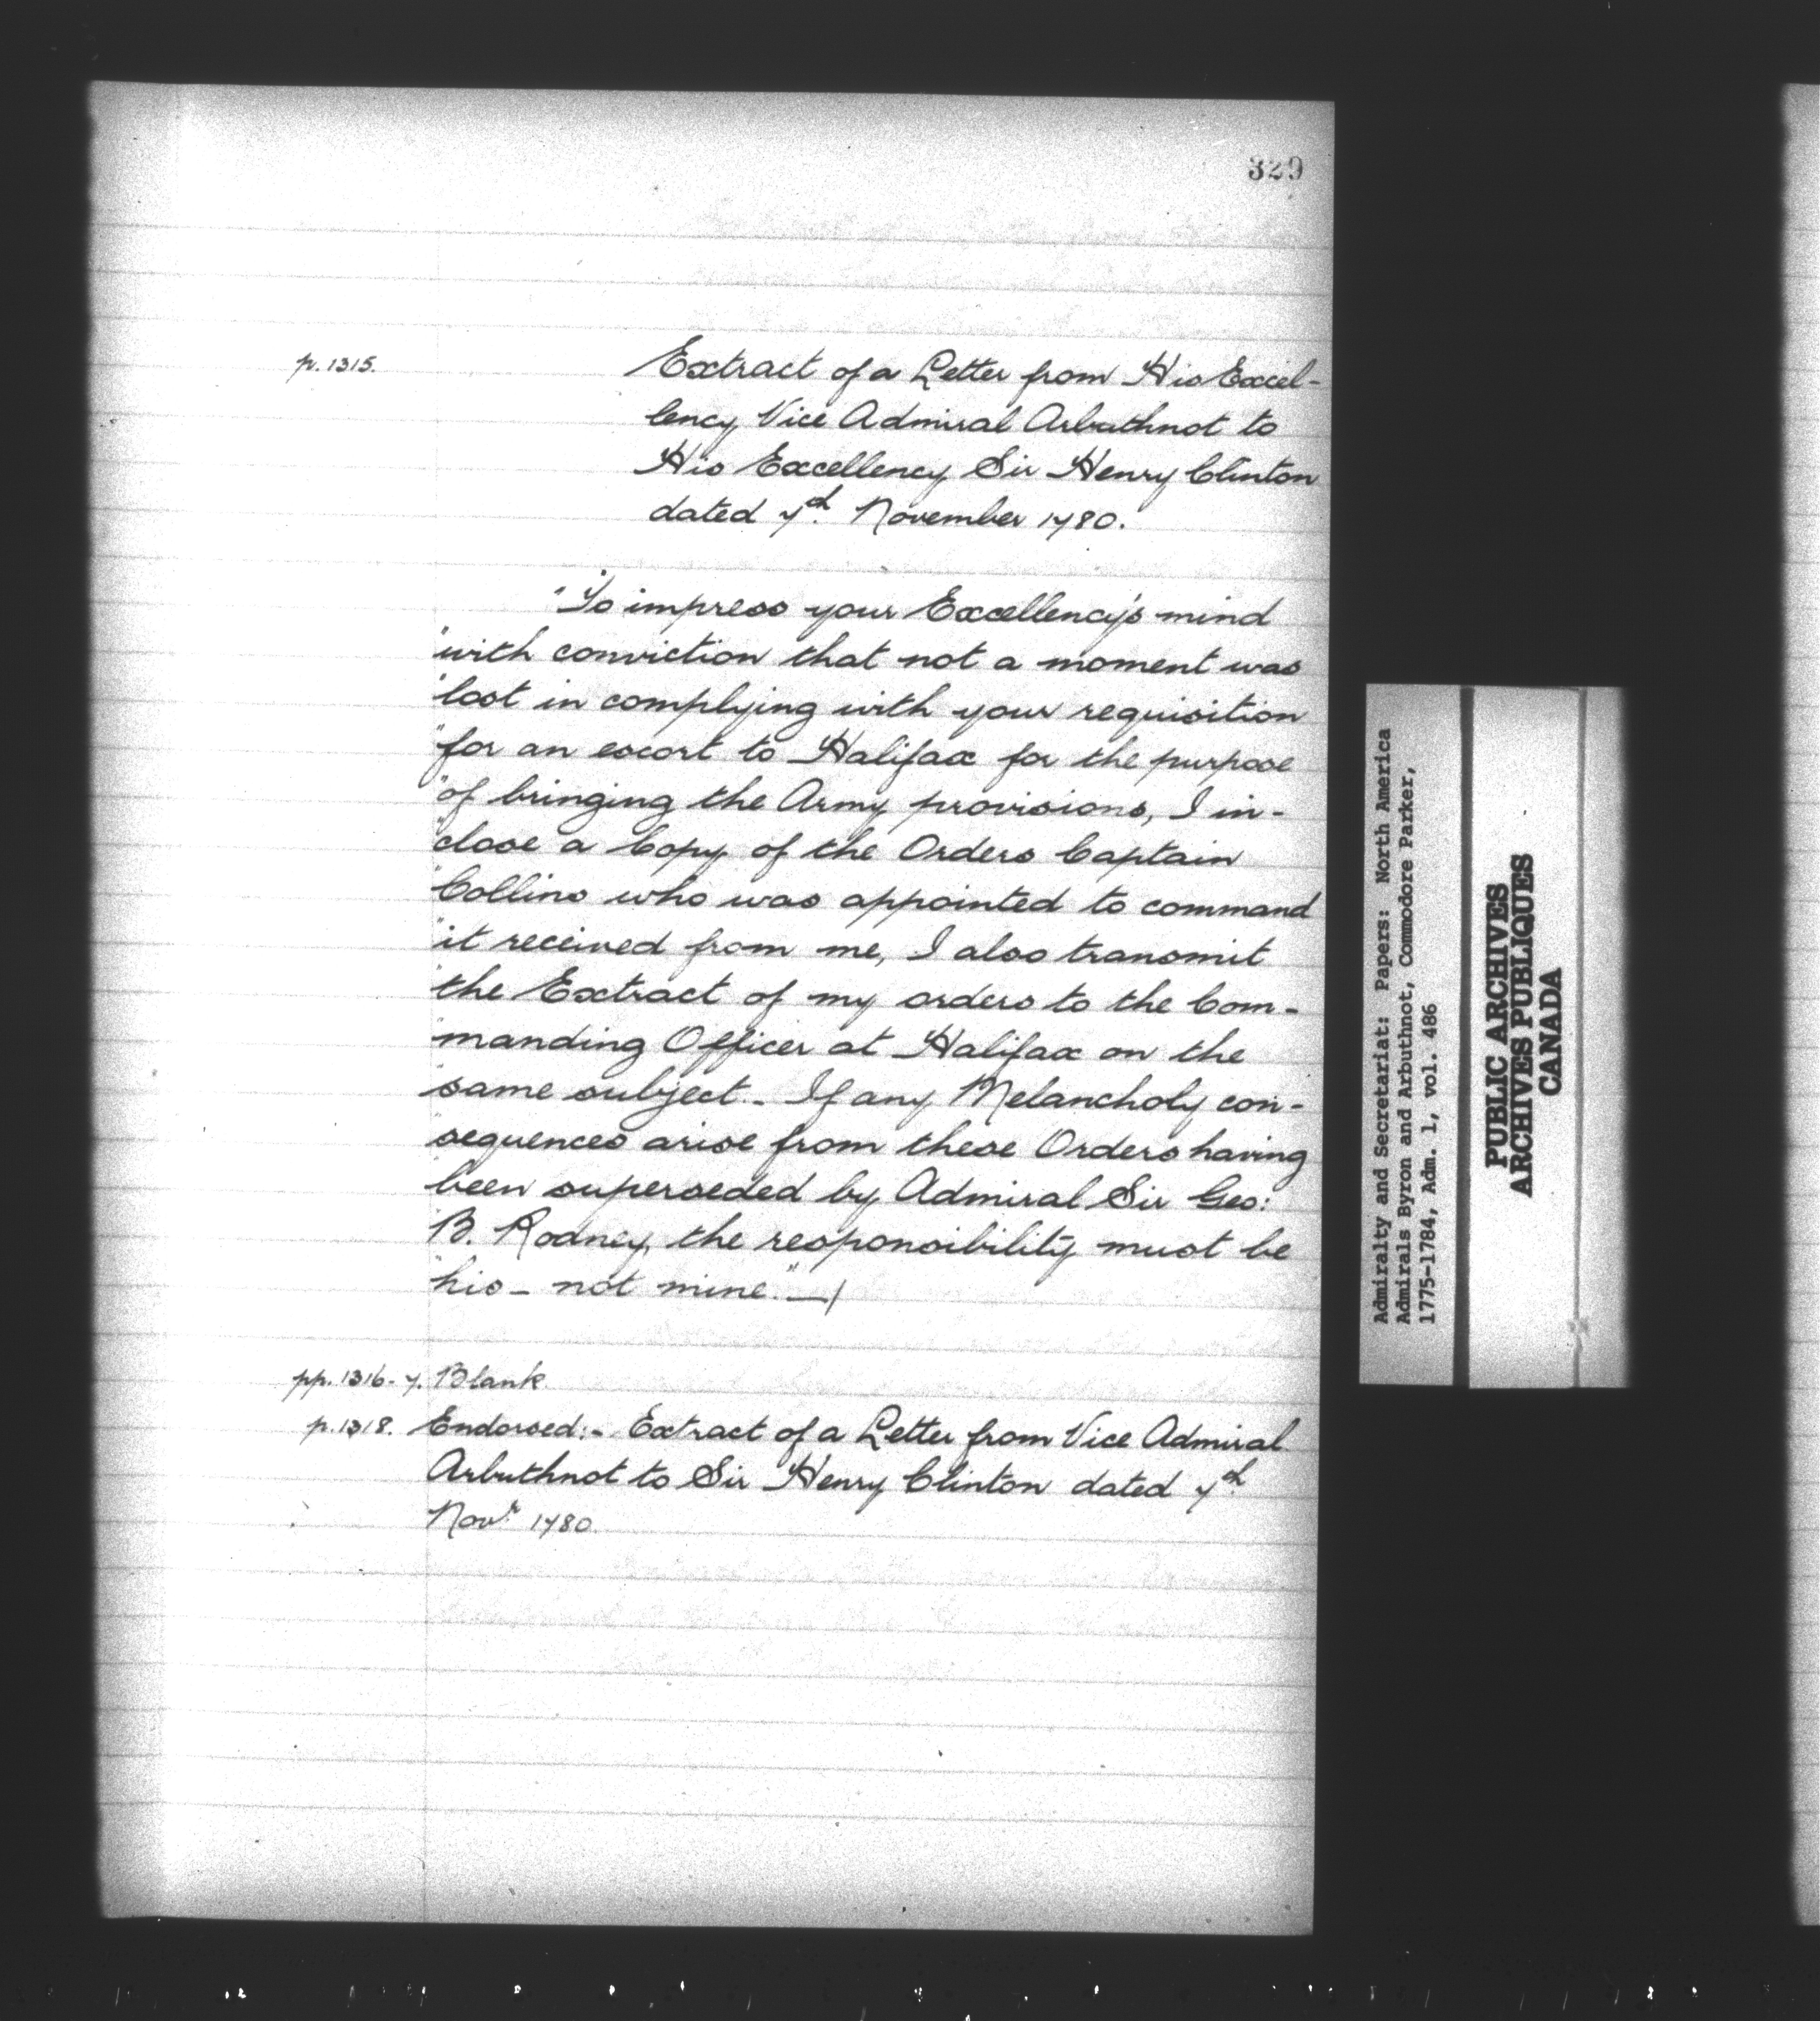 329
p. 1315.
Extract of a Letter from His Excel-
lency Vice Admiral Arbuthnot to
His Excellency Sir Henry Clinton
dated 7th. November 1780.
"To impress your Excellency's mind
"with conviction that not a moment was
"lost in complying with your requisition
"for an escort to Halifax for the purpose
"of bringing the Army provisions, I in-
"close a Copy of the Orders Captain
"Collins who was appointed to command
"it received from me, I also transmit
"the Extract of my orders to the Com-
"manding Officer at Halifax on the
"same subject. - If any Melancholy con-
"sequences arise from these Orders having
"been superseded by Admiral Sir Geo:
"B. Rodney, the responsibility must be
"his - not mine." —/
pp. 1316-7. Blank.
p. 1318. Endorsed:- Extract of a Letter from Vice Admiral
Arbuthnot to Sir Henry Clinton dated 7th.
Novr. 1780.
Admiralty and Secretariat: Papers: North America
Admirals Byron and Arbuthnot, Commodore Parker,
1775-1784, Adm. 1, vol. 486
PUBLIC ARCHIVES
ARCHIVES PUBLIQUES
CANADA